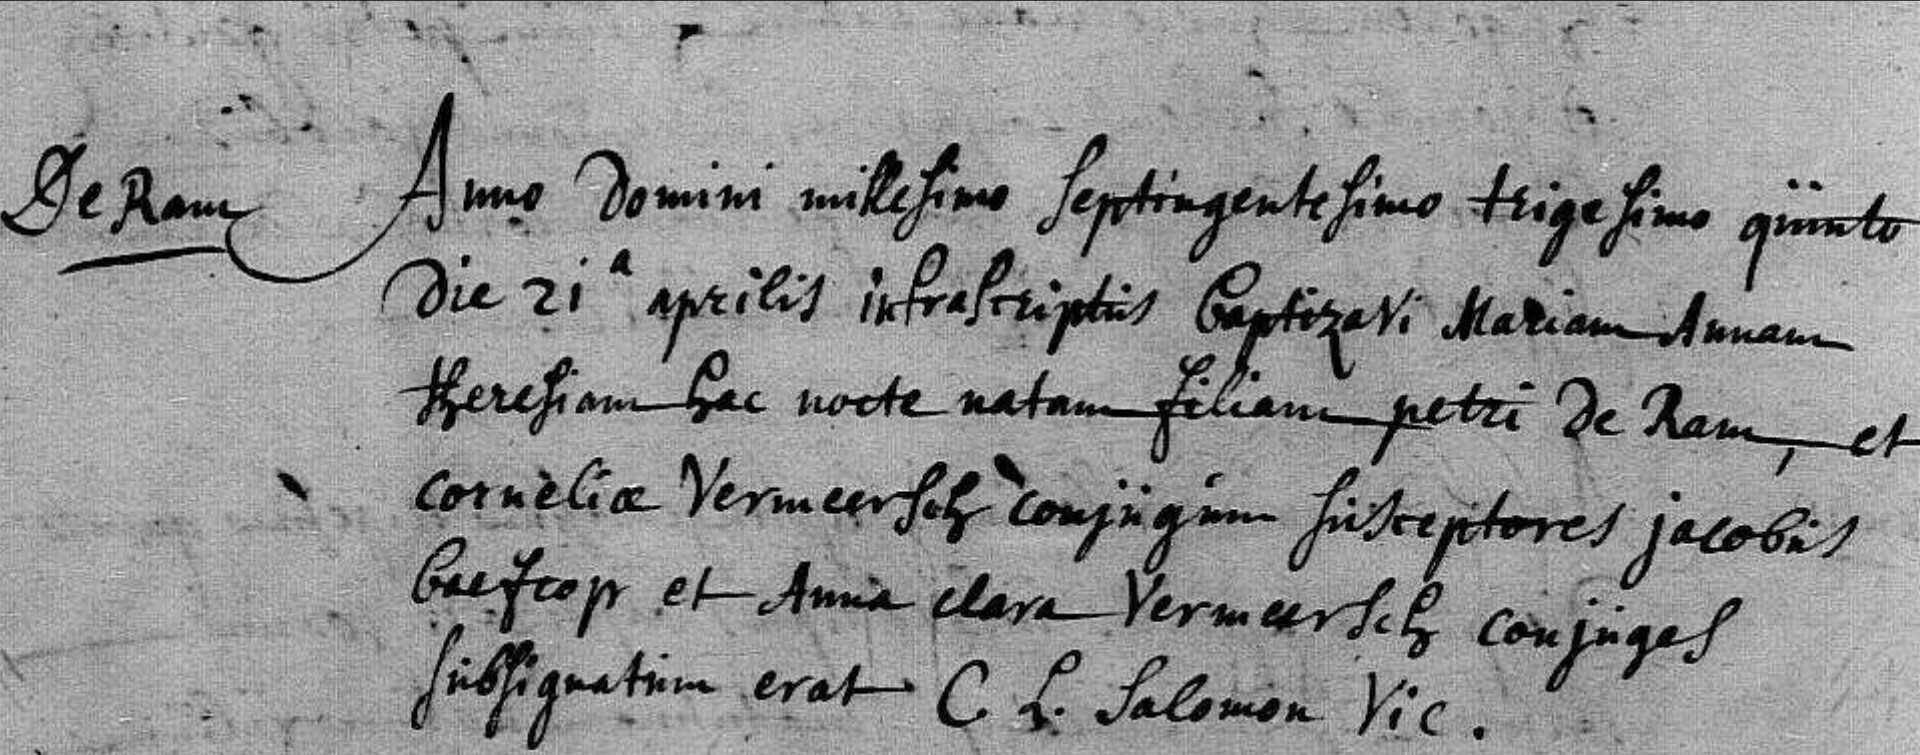 De Ram
Anno Domini millesimo septingentesimo trigesimo quinto
Die 21a aprilis infrascriptus baptizavi Mariam Annam
theresiam hac nocte natam filiam petri De Ram, et
corneliæ Vermeersch conjugum susceptores jacobus
et Anna clara Vermeersch conjuges
subsignatum erat C. L. Salomon Vic.